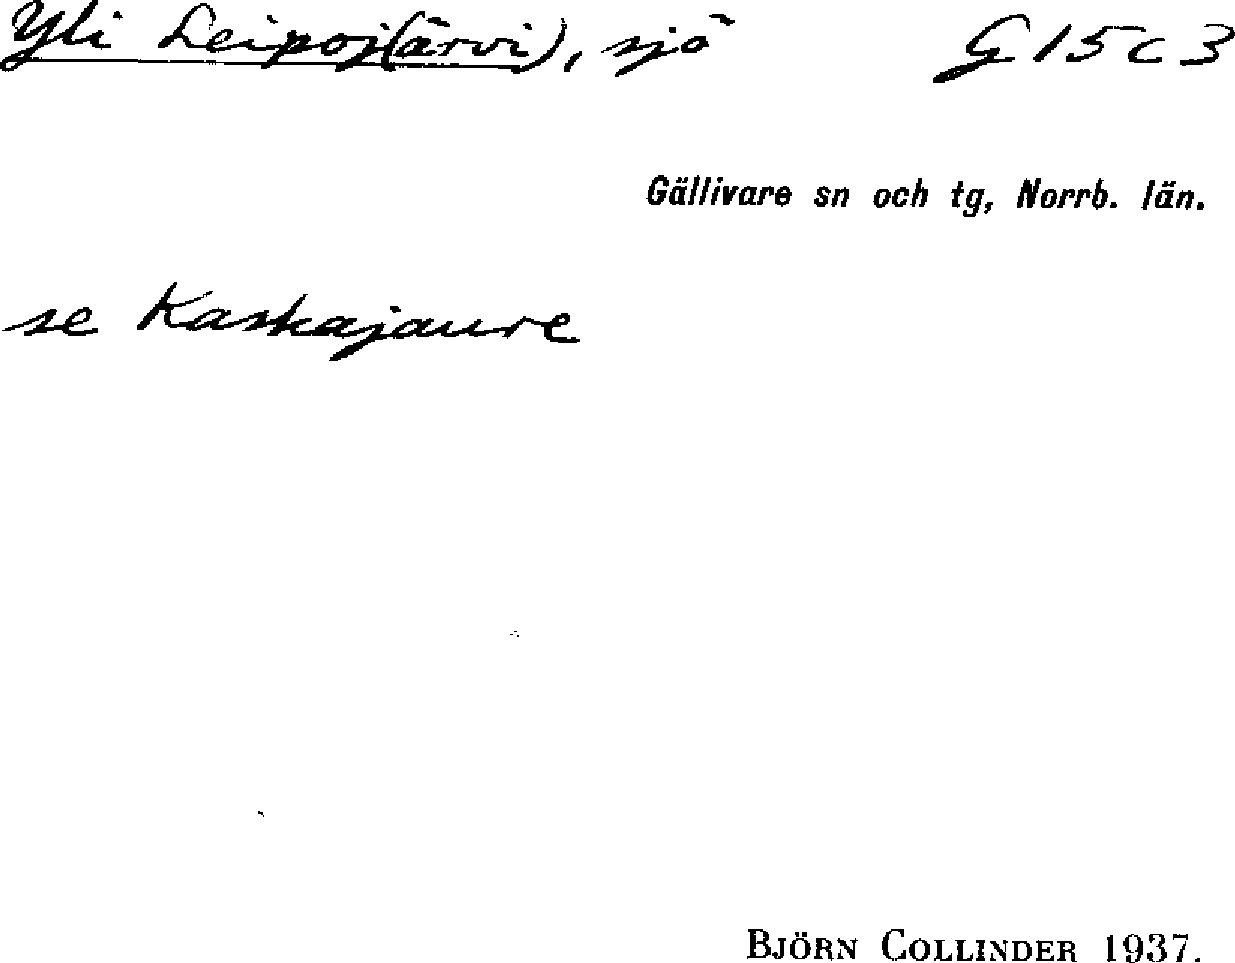 Yli Leipoj(ärvi), sjö G 15 c 3
Gällivare sn och tg, Norrb. län.
se Kaskajaure
BJÖRN COLLINDER 1937.